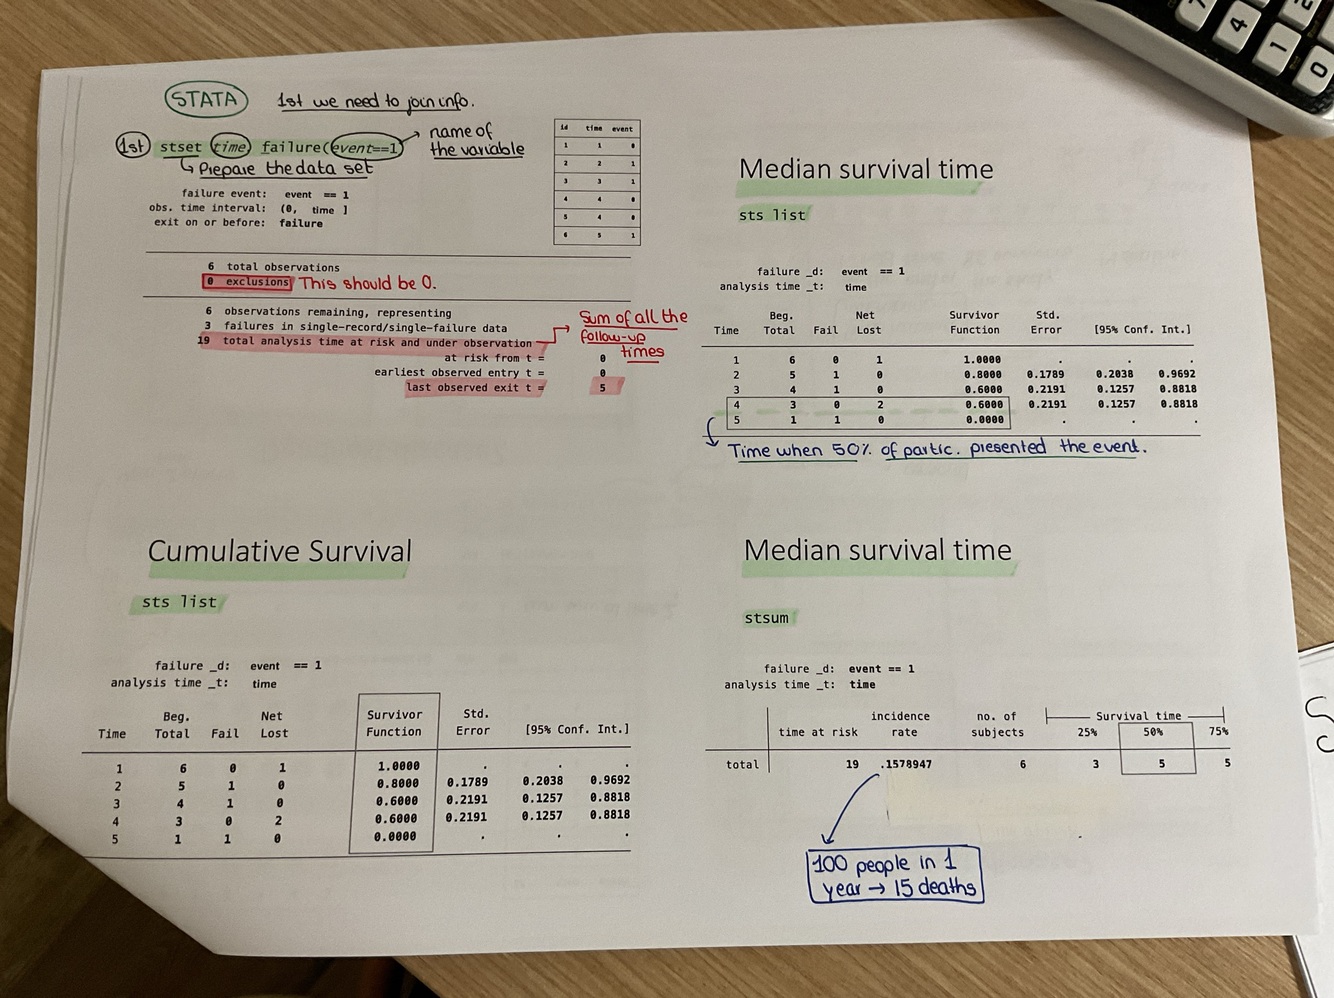 STATA
1st we need to join info.
1st stset time failure(event==1)
name of
the variable
Prepare the data set
failure event: event == 1
obs. time interval: (0, time ]
exit on or before: failure
id time event
1 1 0
2 2 1
3 3 1
4 4 0
5 4 0
6 5 1
6 total observations
0 exclusions This should be 0.
6 observations remaining, representing
3 failures in single-record/single-failure data
19 total analysis time at risk and under observation
at risk from t = 0
earliest observed entry t = 0
last observed exit t = 5
Sum of all the
follow-up
times
Median survival time
sts list
failure _d: event == 1
analysis time _t: time
Beg. Net Survivor Std.
Time Total Fail Lost Function Error [95% Conf. Int.]
1 6 0 1 1.0000 . . .
2 5 1 0 0.8000 0.1789 0.2038 0.9692
3 4 1 0 0.6000 0.2191 0.1257 0.8818
4 3 0 2 0.6000 0.2191 0.1257 0.8818
5 1 1 0 0.0000 . . .
Time when 50% of partic. presented the event.
Cumulative Survival
sts list
failure _d: event == 1
analysis time _t: time
Beg. Net Survivor Std.
Time Total Fail Lost Function Error [95% Conf. Int.]
1 6 0 1 1.0000 . . .
2 5 1 0 0.8000 0.1789 0.2038 0.9692
3 4 1 0 0.6000 0.2191 0.1257 0.8818
4 3 0 2 0.6000 0.2191 0.1257 0.8818
5 1 1 0 0.0000 . . .
Median survival time
stsum
failure _d: event == 1
analysis time _t: time
incidence no. of Survival time
time at risk rate subjects 25% 50% 75%
total 19 .1578947 6 3 5 5
100 people in 1
year → 15 deaths
4
1
0